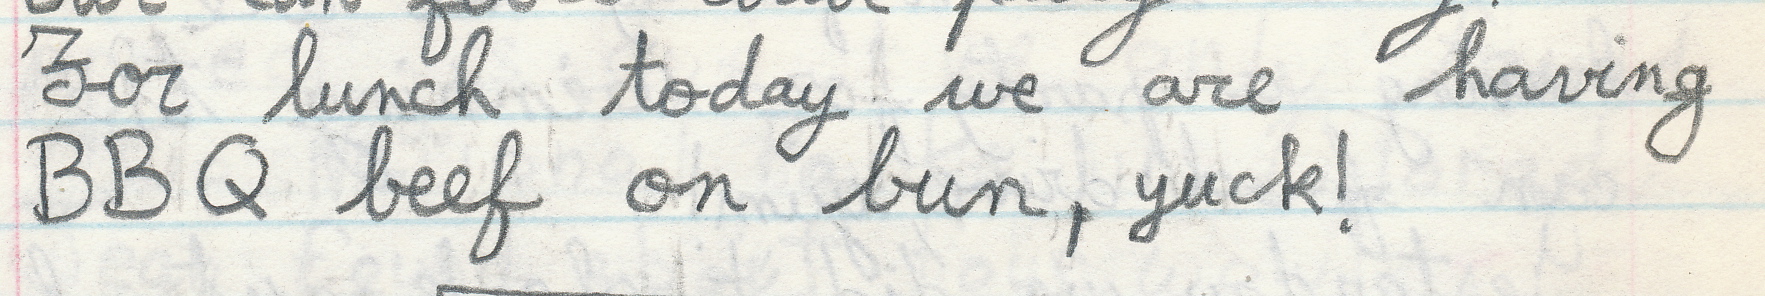 For lunch today we are having
BBQ beef on bun, yuck!